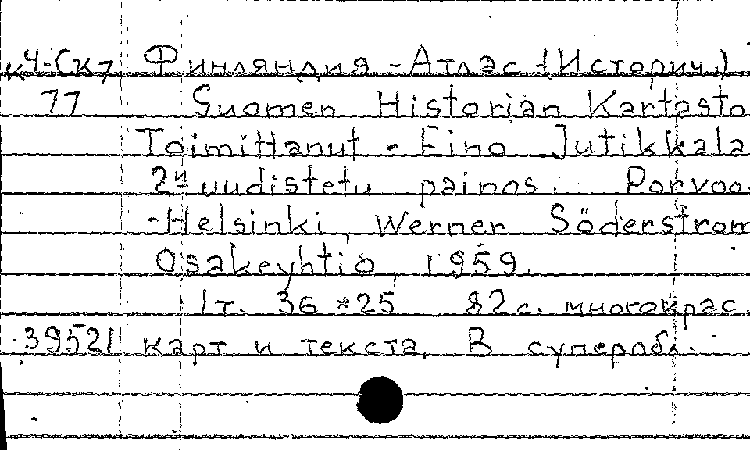 к4-Ск7 Финляндия - Атлас (Историч.)
77 Suomen Historian Kartasto
Toimittanut - Eino Jutikkala
2ª uudistetu painos. Porvoo
- Helsinki, Werner Söderstrom
Osakeyhtio, 1959.
1т. 36*25 82с. многокрас.
39521 карт и текста. В суперобл.